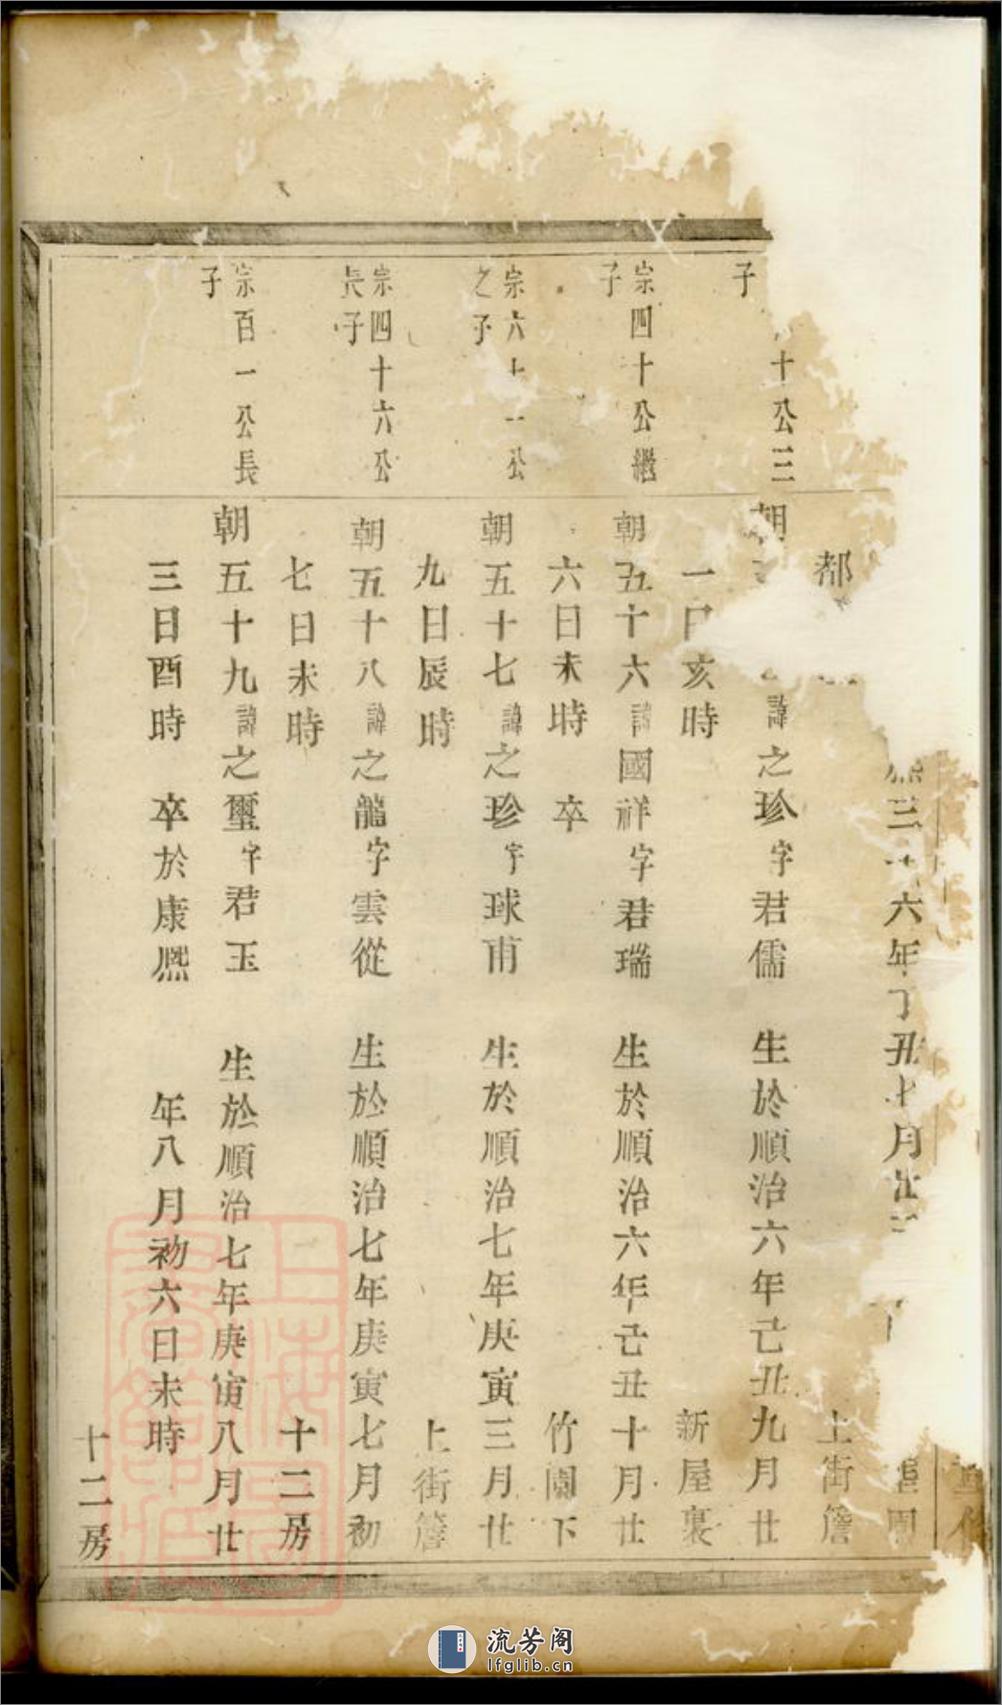 三十六年丁丑七月廿
都
上街簷
十公三
子
朝
諱之珍字君儒
生於順治六年己丑九月廿
一日亥時
新屋裏
宗四十公繼
子
朝五十六諱國祥字君瑞
生於順治六年己丑十月廿
六日未時
卒
竹園下
宗六十一公
之子
朝五十七諱之珍字球甫
生於順治七年庚寅三月廿
九日辰時
上街簷
宗四十六公
長子
朝五十八諱之龍字雲從
生於順治七年庚寅七月初
七日未時
十二房
宗百一公長
子
朝五十九諱之璽字君玉
生於順治七年庚寅八月廿
三日酉時
卒於康熙
年八月初六日未時
十二房
上海圖書館藏
流芳阁
lfglib.cn